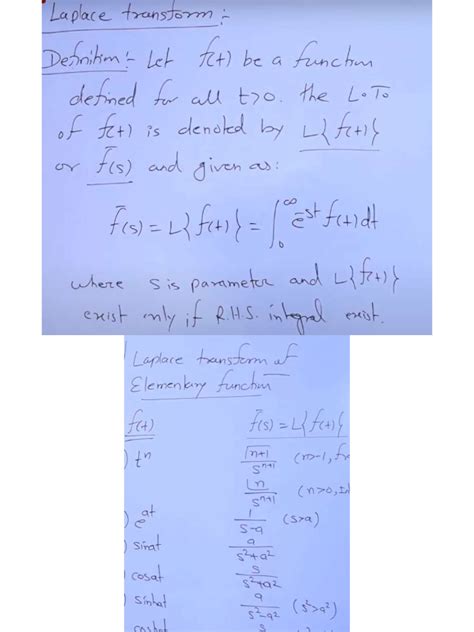 Laplace transform :-
Definition :- Let f(t) be a function
defined for all t>0. the L.T.
of f(t) is denoted by L{f(t)}
or f̄(s) and given as:
f̄(s) = L{f(t)} = ∫₀^∞ e^-st f(t)dt
where s is parameter and L{f(t)}
exist only if R.H.S. integral exist.
Laplace transform of
Elementary function
f(t) f̄(s) = L{f(t)}
) tⁿ Γn+1 / sⁿ⁺¹ (n>-1,
n / sⁿ⁺¹ (n>0,
) e^at 1 / s-a (s>a)
) sinat a / s²+a²
) cosat s / s²+a²
) sinhat a / s²-a² (s²>a²)
coshat s